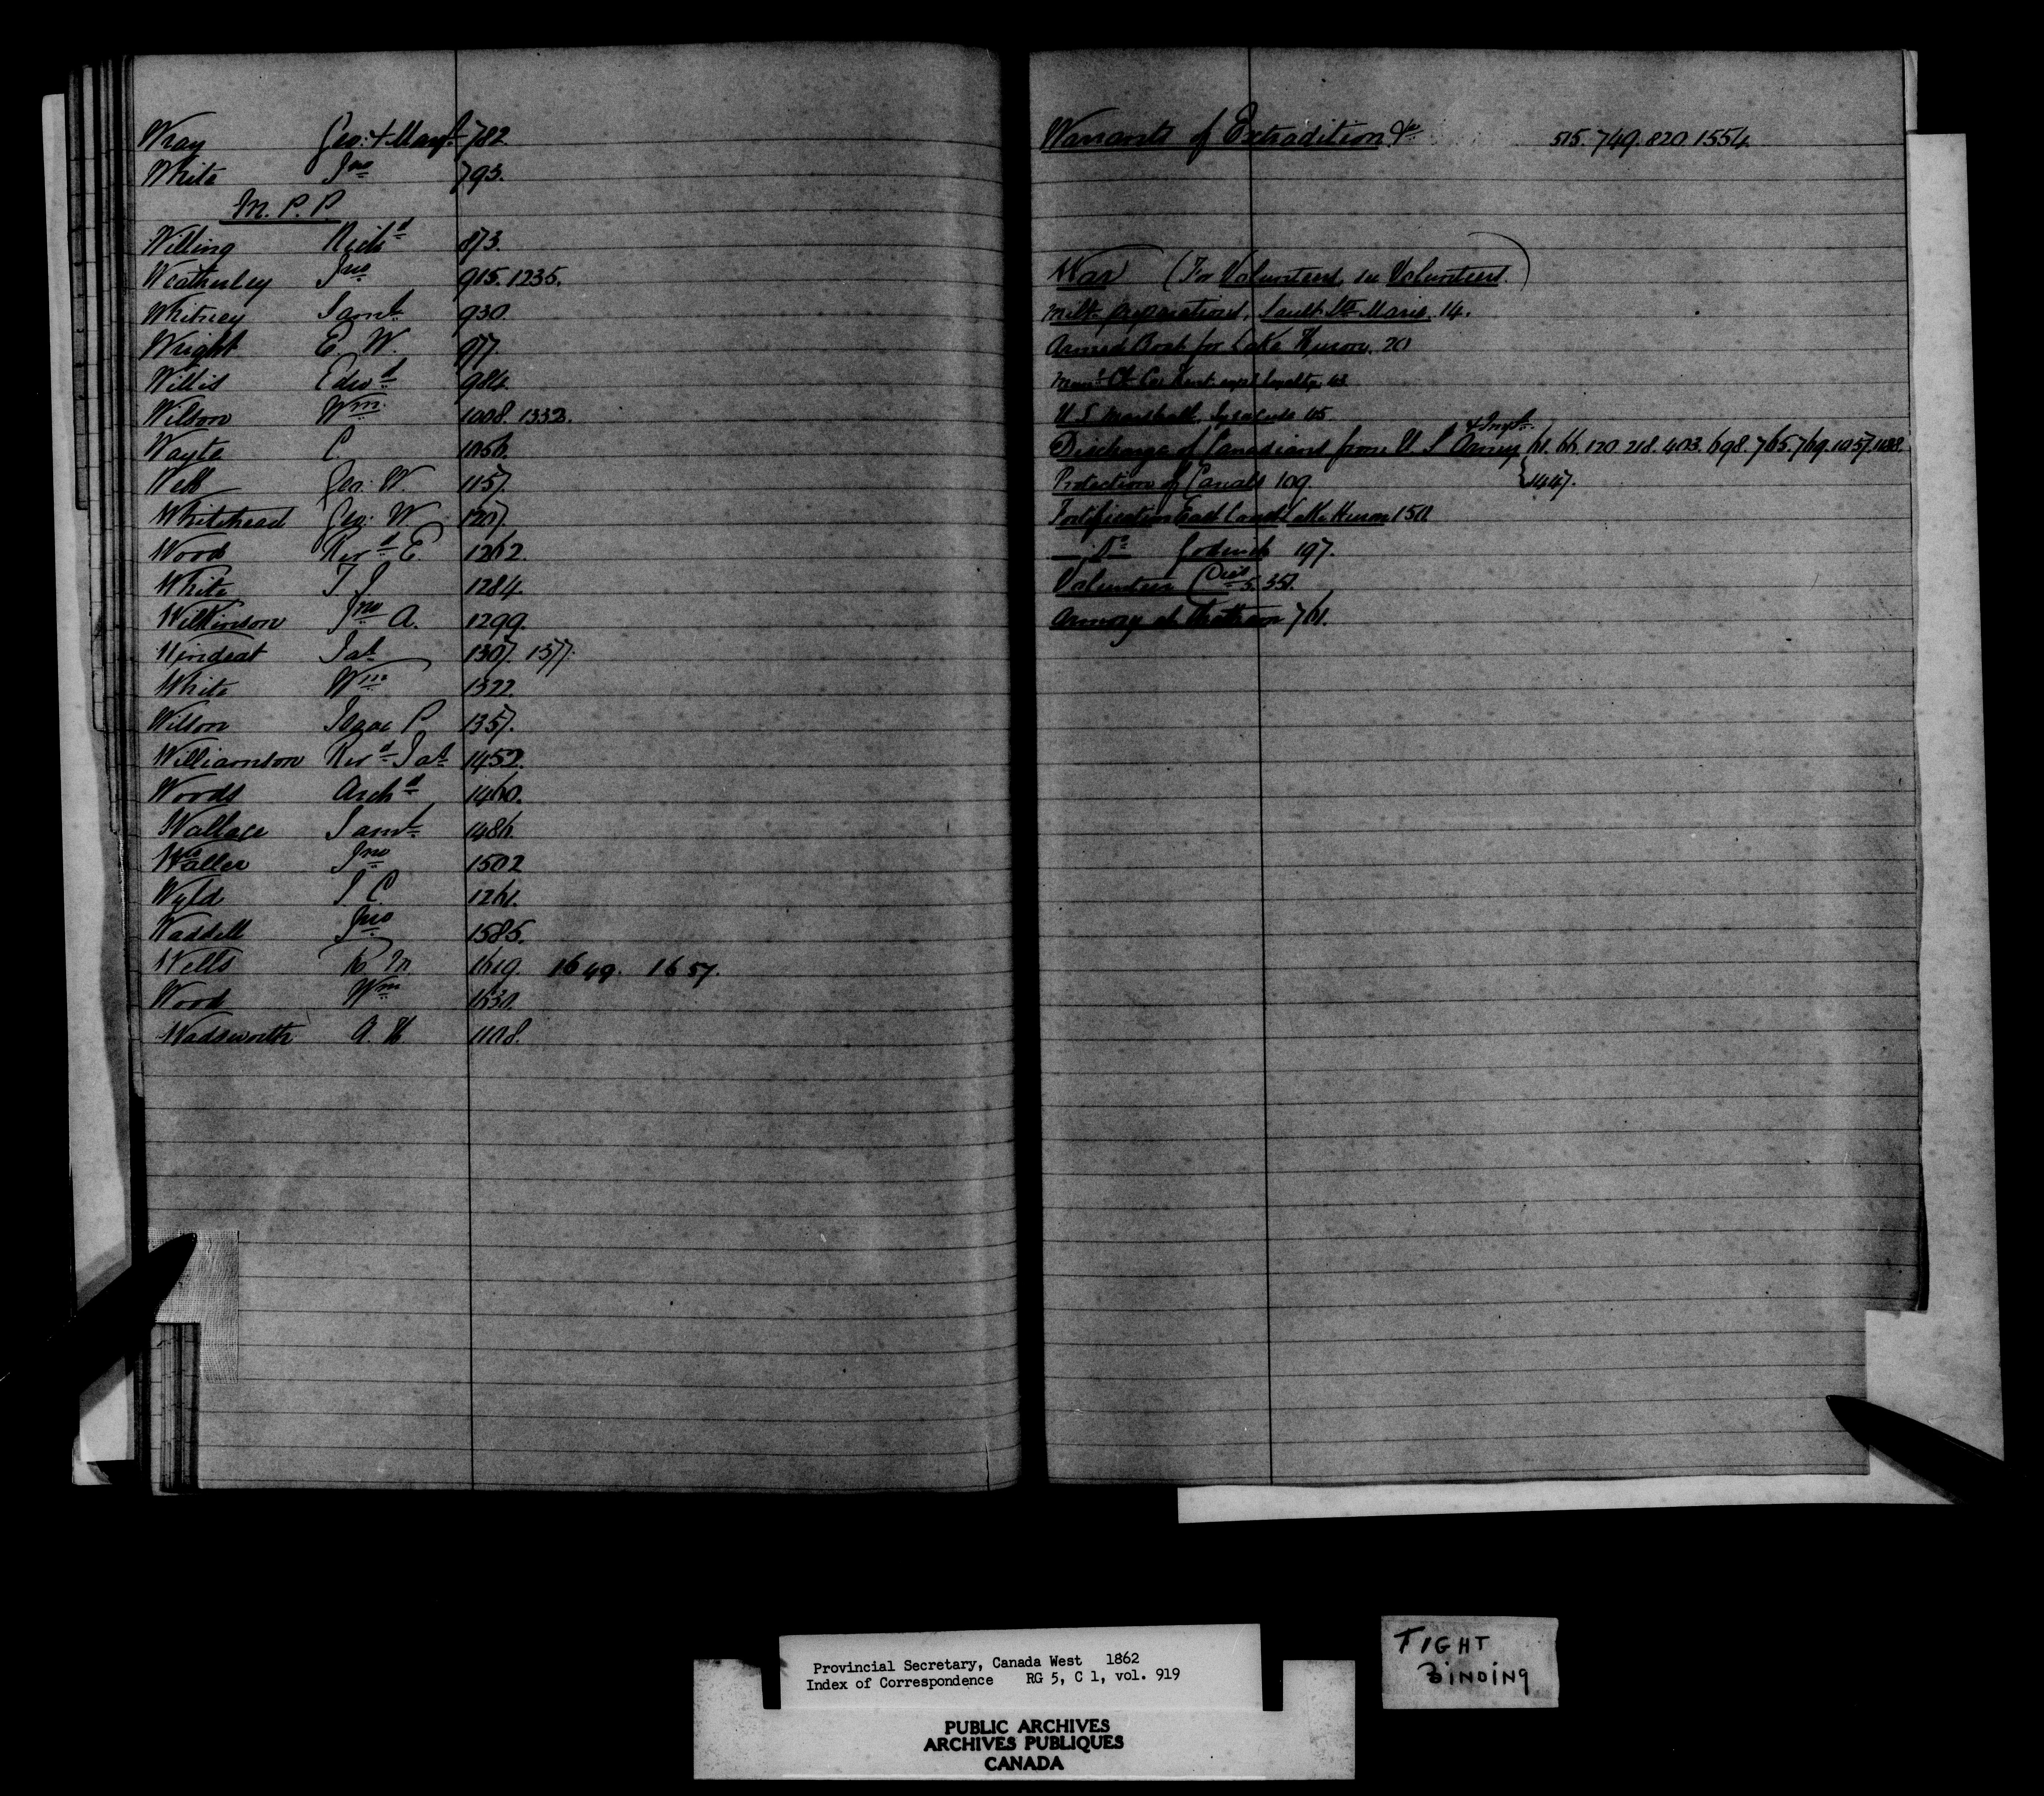 Wray Geo: & Margt 782
White Jno 793.
M. P. P.
Willing Richd 873.
Weatherley Jno 915. 1235.
Whitney Saml 930.
Wright E. W. 977.
Willis Edwd 984.
Wilson Wm 1008. 1332.
Wayte C. 1056.
Geo: W. 1157.
Whitehead Geo: W 1207.
Wood Revd E 1262.
White T. J. 1284.
Wilkinson Jno A. 1299.
Jas 1307. 1377.
White Wm 1322.
Wilson Isaac P 1357.
Williamson Revd Jas 1452.
Woods Archd 1460.
Wallace Saml 1486.
Waller Jno 1502
Wyld J C. 1261.
Waddell Jno 1585.
Wells R. M. 1619. 1649. 1657.
Wood Wm 1630.
Wadsworth A. H 1108.
Warrants of Extradition &c 515. 749. 820 1554
War (For Volunteers, see Volunteers.)
Milty preparations, Sault Ste Marie. 14.
Armed Boat for Lake Huron. 20
Co. Kent loyalty 43
U. S Marshall, Syracuse 45
& Impt.
Discharge of Canadians from U S Army 61. 66. 120 218. 403. 698. 765. 769. 1057. 1188.
Protection of Canals 109 } 1447.
Fortification East Coast Lake Huron 150
— Do Goderich 197.
Volunteer Coies 351.
Armory at Chatham 761.
Provincial Secretary, Canada West 1862
Index of Correspondence RG 5, C 1, vol. 919
PUBLIC ARCHIVES
ARCHIVES PUBLIQUES
CANADA
TIGHT
BINDING